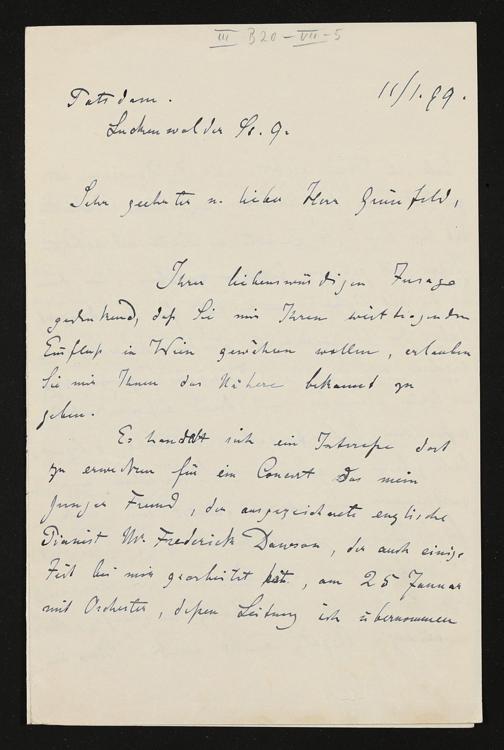 III B20-VII-5
11/1. 99.
Potsdam.
Luckenwalder St. 9.
Sehr geehrter u. lieber Herr Grünfeld,
Ihrer liebenswürdigen Zusage
gedenkend, daß Sie mir Ihren
Einfluß in Wien gewähren wollen, erlauben
Sie mir Ihnen das Nähere bekannt zu
geben.
Es handelt sich ein Interesse dort
zu erwecken für ein Concert das mein
junger Freund, der ausgezeichnete englische
Pianist Mr. Frederick Dawson, der auch einige
Zeit bei mir gearbeitet hat, am 25 Januar
mit Orchester, deßen Leitung ich übernommen